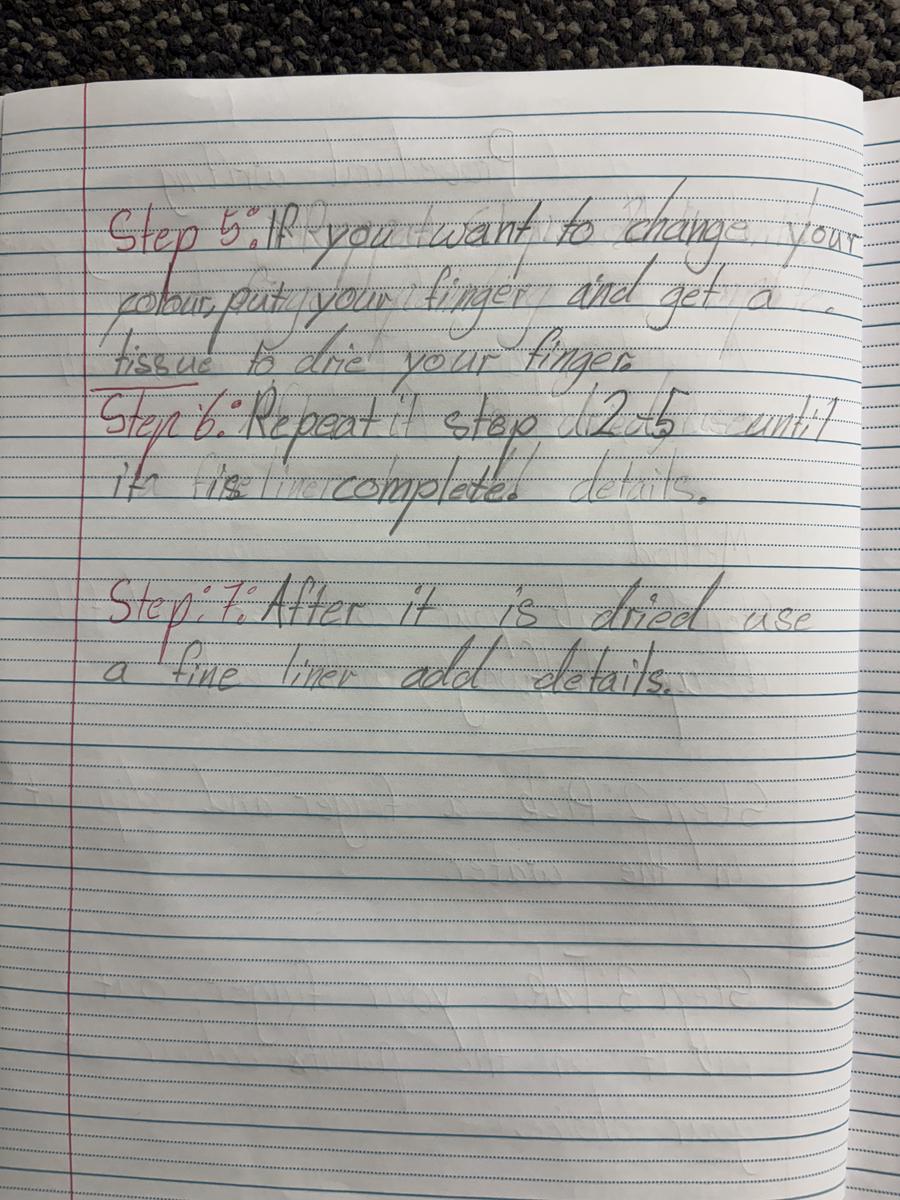 Step 5: If you want to change your
colour, put your finger and get a
tissue to drie your finger.
Step 6: Repeat step 2-5 until
it is complete.
Step: 7: After it is dried use
a fine liner add details.